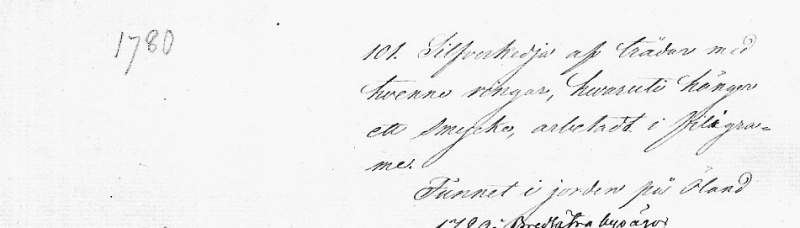 1780
101. Silfverkedja af trådar med
twenne ringar, hwaruti hänger
ett smycke, arbetadt i filigra=
me.
Funnet i jorden på Öland
1780; Bredsätra